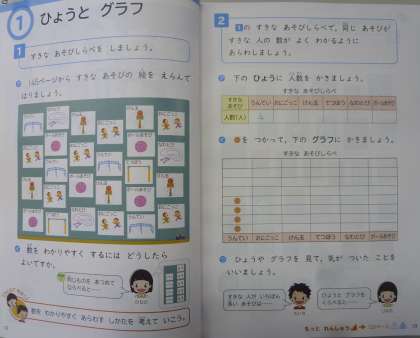 1 ひょうと グラフ
1
すきな あそびしらべを しましょう。
ア 145ページから すきな あそびの 絵を えらんで
はりましょう。
イ 数を わかりやすく するには どうしたら
よいですか。
同じものを あつめて
ならべると……
数を わかりやすく あらわす しかたを 考えて いこう。
2
1の すきな あそびしらべで、同じ あそびが
すきな 人の 数が よく わかるように
あらわしましょう。
ア 下の ひょうに 人数を かきましょう。
すきな あそびしらべ
すきな
あそび
うんてい おにごっこ けん玉 てつぼう なわとび ボールあそび
人数(人) 4
イ ●を つかって、下の グラフに かきましょう。
すきな あそびしらべ
うんてい おにごっこ けん玉 てつぼう なわとび ボールあそび
ウ ひょうや グラフを 見て、気が ついた ことを
いいましょう。
すきな 人が いちばん
多い あそびは……
ひょうと グラフを
くらべると……
もっと れんしゅう